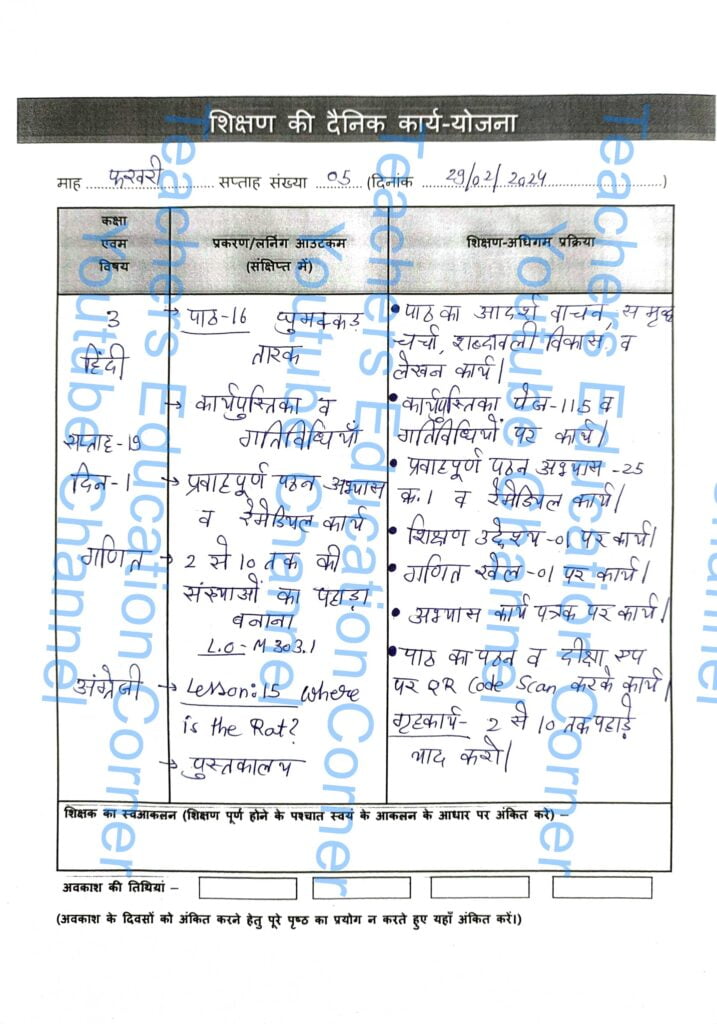 शिक्षण की दैनिक कार्य-योजना
माह फरवरी सप्ताह संख्या 05 (दिनांक 29/02/2024)
कक्षा
एवम
विषय
प्रकरण/लर्निंग आउटकम
(संक्षिप्त में)
शिक्षण-अधिगम प्रक्रिया
3
हिंदी
सप्ताह-19
दिन-1
गणित
अंग्रेजी
→ पाठ-16 घुमक्कड़
तारक
→ कार्यपुस्तिका व
गतिविधियाँ
→ प्रवाहपूर्ण पठन अभ्यास
व रेमेडियल कार्य
→ 2 से 10 तक की
संख्याओं का पहाड़ा
बनाना
L.O-M303.1
→ Lesson:15 where
is the Rat?
→ पुस्तकालय
• पाठ का आदर्श वाचन, समूह
चर्चा, शब्दावली विकास, व
लेखन कार्य।
• कार्यपुस्तिका पेज-115 व
गतिविधियों पर कार्य।
• प्रवाहपूर्ण पठन अभ्यास-25
क.1 व रेमेडियल कार्य।
• शिक्षण उद्देश्य-01 पर कार्य।
• गणित खेल-01 पर कार्य।
• अभ्यास कार्य पत्रक पर कार्य।
• पाठ का पठन व दीक्षा एप
पर QR Code Scan करके कार्य।
गृहकार्य- 2 से 10 तक पहाड़े
याद करो।
शिक्षक का स्वआकलन (शिक्षण पूर्ण होने के पश्चात स्वयं के आकलन के आधार पर अंकित करे) –
अवकाश की तिथियां –
(अवकाश के दिवसों को अंकित करने हेतु पूरे पृष्ठ का प्रयोग न करते हुए यहाँ अंकित करें।)
Teachers Education Corner
Youtube Channel
Teachers Education Corner
Youtube Channel
Teachers Education Corner
Youtube Channel